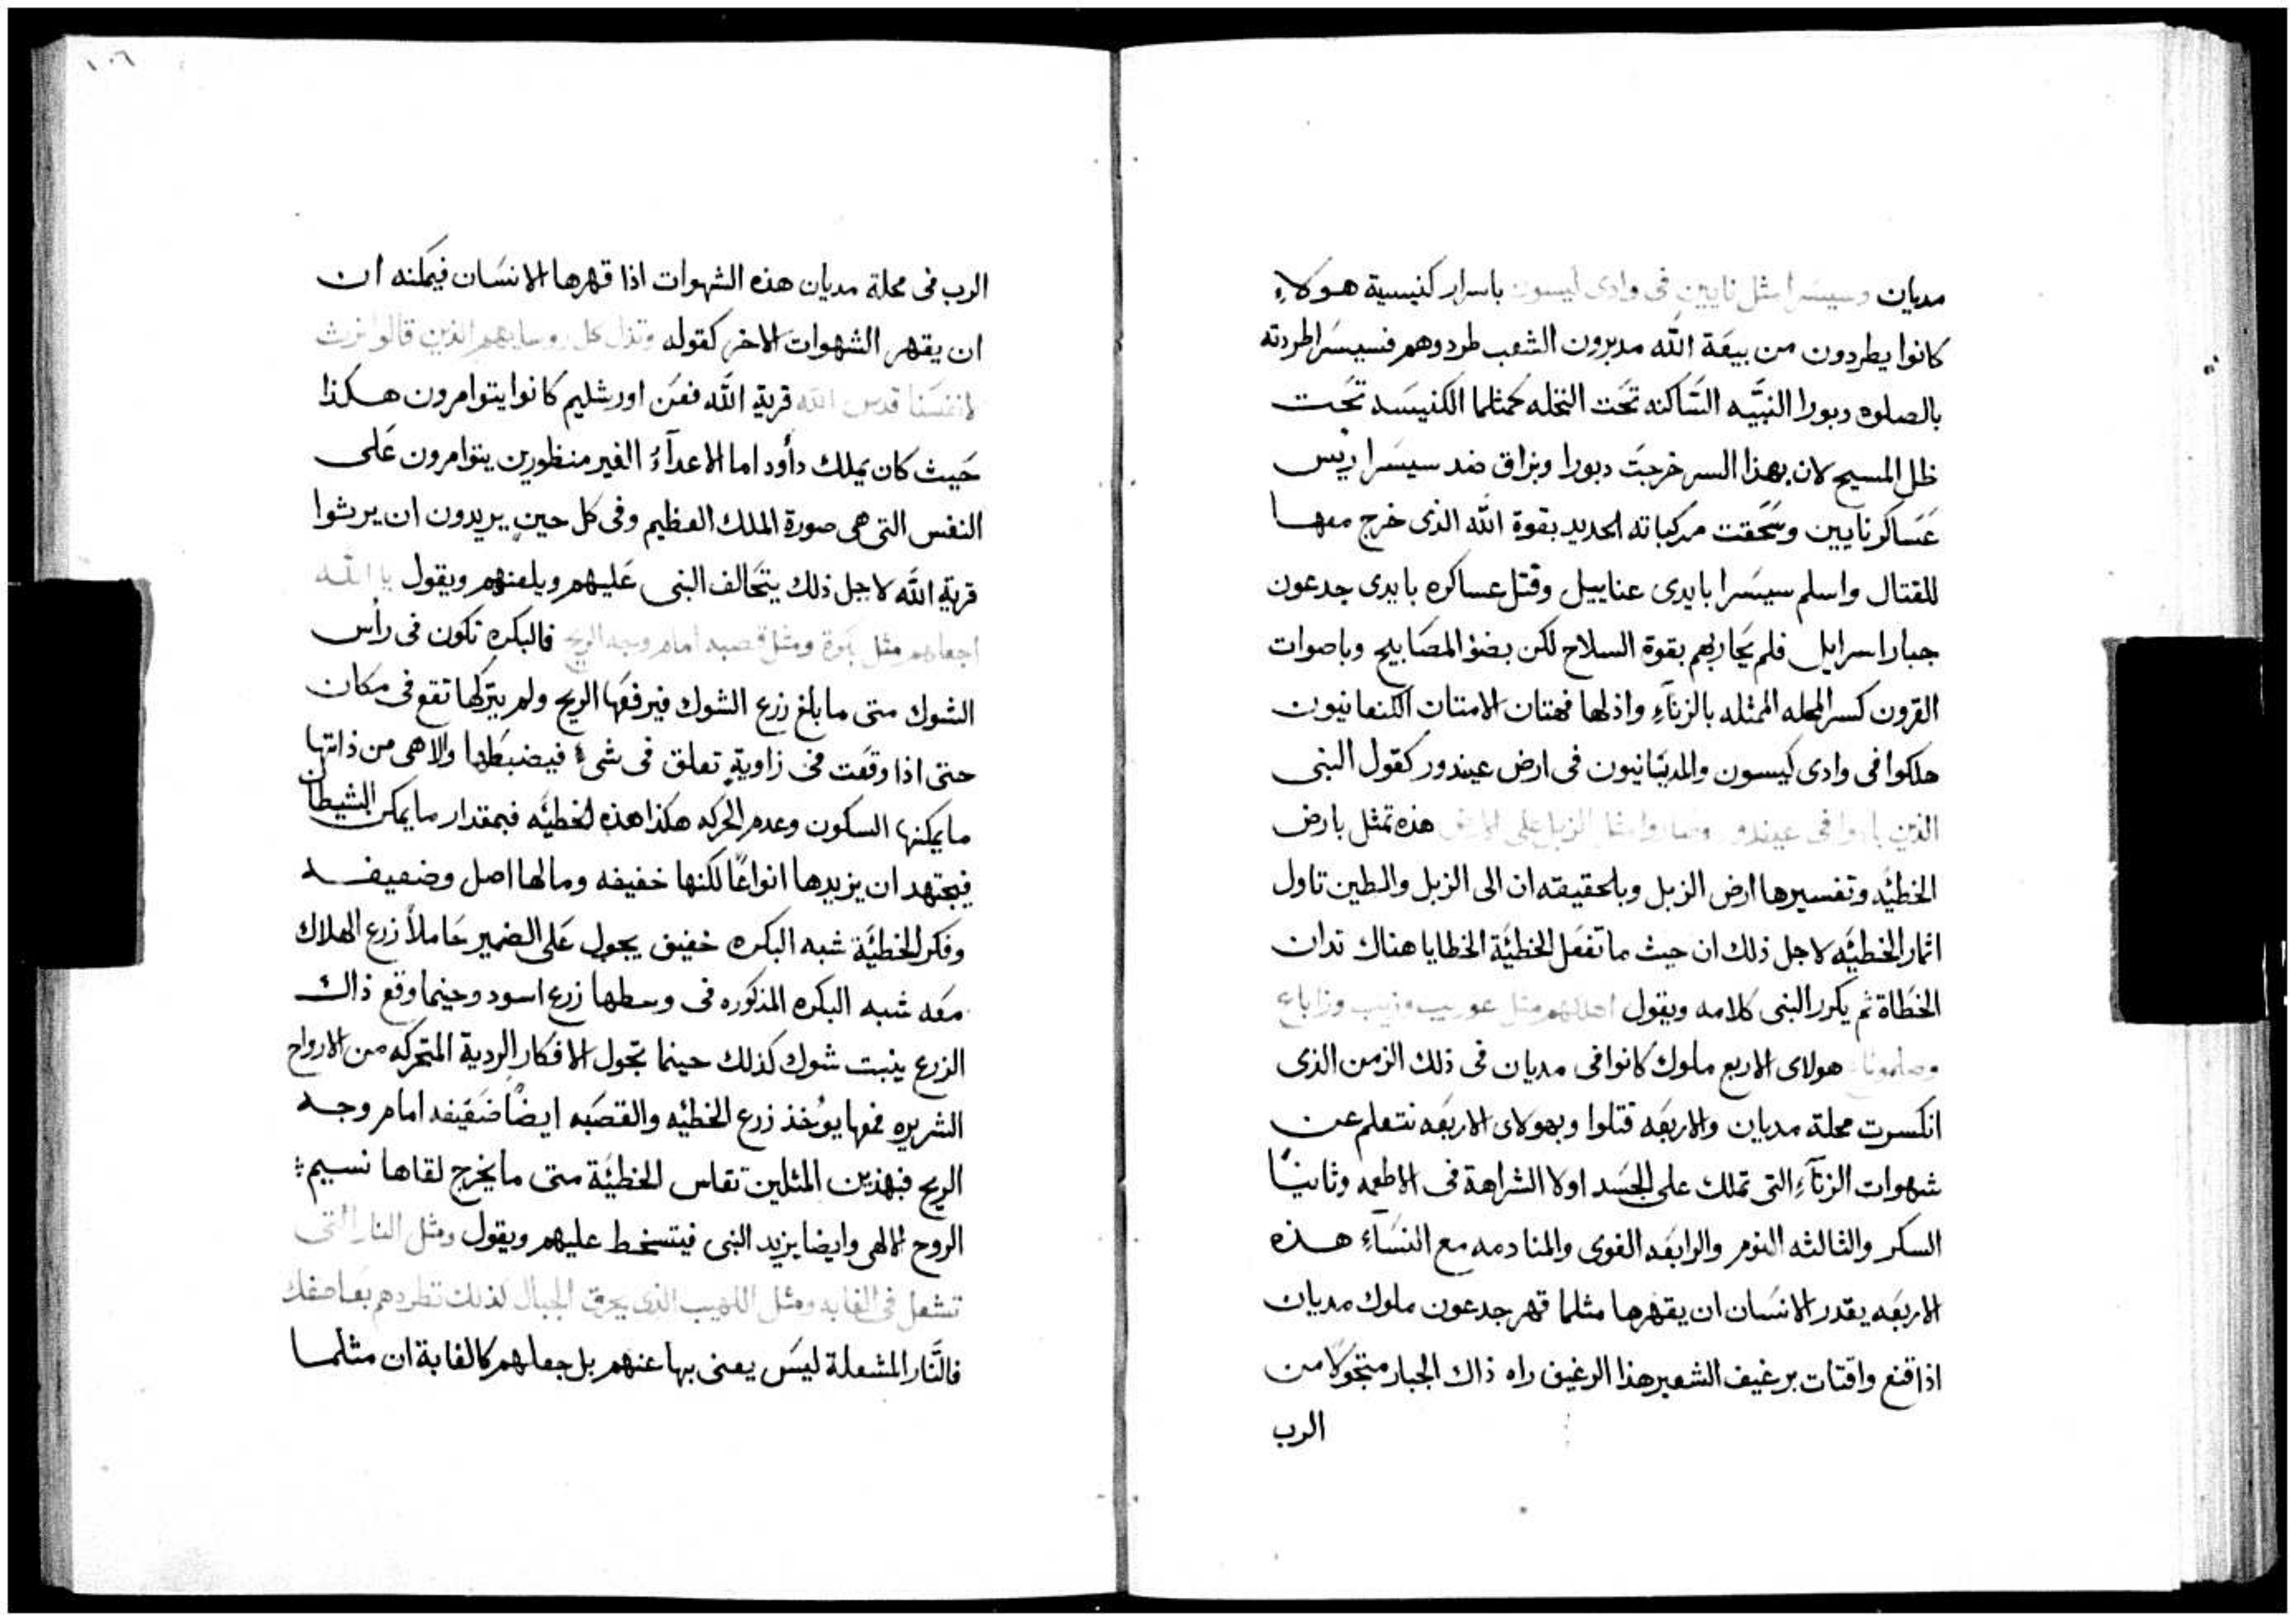 مديان وسيسرا مثل نايين فى وادى ليسون باسرار كنيسية هولاء
كانوا يطردون من بيعة الله مدبرون الشعب طردوهم فسيسرا طردته
بالصلوه دبورا النبيّه السّاكنه تحت النخله كمثلما الكنيسه تحت
ظل المسيح لان بهذا السر خرجت دبورا وبراق ضد سيسرا ريس
عساكر نايين وسحقت مركباته الحديد بقوة الله الذى خرج معها
للقتال واسلم سيسرا بايدى عناييل وقتل عساكره بايدى جدعون
جبار اسرايل فلم يحاربهم بقوة السلاح لكن بضؤ المصابيح وباصوات
القرون كسر المحله الممثله بالزناء واذلها فهتان الامتان الكنعانيون
هلكوا فى وادى كيسون والمديانيون فى ارض عيندور كقول النبى
الذين بادوا فى عيندور وصاروا مثل الزبل على الارض هذه تمثل بارض
الخطيّه وتفسيرها ارض الزبل وبالحقيقه ان الى الزبل والطين تاول
اثمار الخطيّه لاجل ذلك ان حيث ما تفعل الخطيّة الخطايا هناك تدان
الخطاة ثم يكرر النبى كلامه ويقول اجعلهم مثل عوريب وزيب وزاباع
وصلمونا هولاى الاربع ملوك كانوا فى مديان فى ذلك الزمن الذى
انكسرت محلة مديان والاربعه قتلوا وبهولاى الاربعه نتعلم عن
شهوات الزناء التى تملك على الجسد اولا الشراهة فى الاطعمه وثانيًا
السكر والثالثه النوم والرابعه الغوى والمنادمه مع النساء هذه
الاربعه يقدر الانسان ان يقهرها مثلما قهر جدعون ملوك مديان
اذا قنع واقتات برغيف الشعير هذا الرغيف راه ذاك الجبار متجولا من
الرب
١٠٦
الرب فى محلة مديان هذه الشهوات اذا قهرها الانسان فيمكنه ان
ان يقهر الشهوات الاخر كقوله وتذل كل روسايهم الذين قالوا نرث
لانفسنا قدس الله قرية الله فعن اورشليم كانوا يتوامرون هكذا
حيث كان يملك دأود اما الاعدآءُ الغير منظورين يتوامرون على
النفس التى هى صورة الملك العظيم وفى كل حين يريدون ان يرثوا
قرية الله لاجل ذلك يتحالف النبى عليهم ويلعنهم ويقول يا الله
اجعلهم مثل بكرة ومثل قصبه امام وجه الريح فالبكره تكون فى رأس
الشوك متى ما بلغ زرع الشوك فيرفعها الريح ولم يتركها تقع فى مكان
حتى اذا وقعت فى زاوية تعلق فى شىء فيضبطها والا هى من ذاتها
ما يمكنها السكون وعدم الحركه هكذا هذه الخطيّه فبمقدار ما يمكن الشيطان
فيجتهد ان يزيدها انواعًا لكنها خفيفه وما لها اصل وضعيفه
وفكر الخطيّة شبه البكره خفيف يجول على الضمير حاملاً زرع الهلاك
معه شبه البكره المذكوره فى وسطها زرع اسود وحينما وقع ذاك
الزرع ينبت شوك كذلك حينما تجول الافكار الردية المتحركه من الارواح
الشريره فمنها يوُخذ زرع الخطيّه والقصبه ايضًا ضعيفه امام وجه
الريح فبهذين المثلين تقاس الخطيّة متى ما يخرج لقاها نسيم
الروح الالهى وايضا يزيد النبى فيتسخط عليهم ويقول ومثل النار التى
تشعل فى الغابه ومثل اللهيب الذى يحرق الجبال كذلك تطردهم بعاصفك
فالنّار المشعلة ليس يعنى بها عنهم بل جعلهم كالغابة ان مثلما